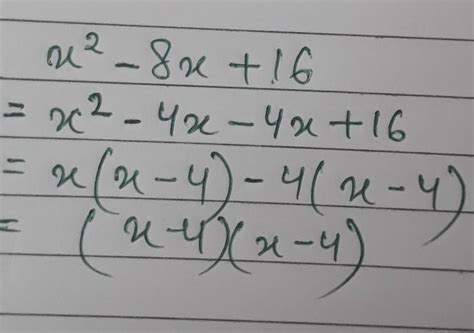 x² - 8x + 16
= x² - 4x - 4x + 16
= x(x - 4) - 4(x - 4)
= (x - 4)(x - 4)